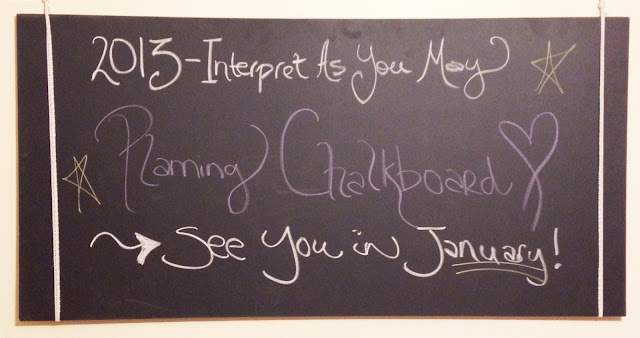 2013 - Interpret As You May
Chalkboard
See You in January!